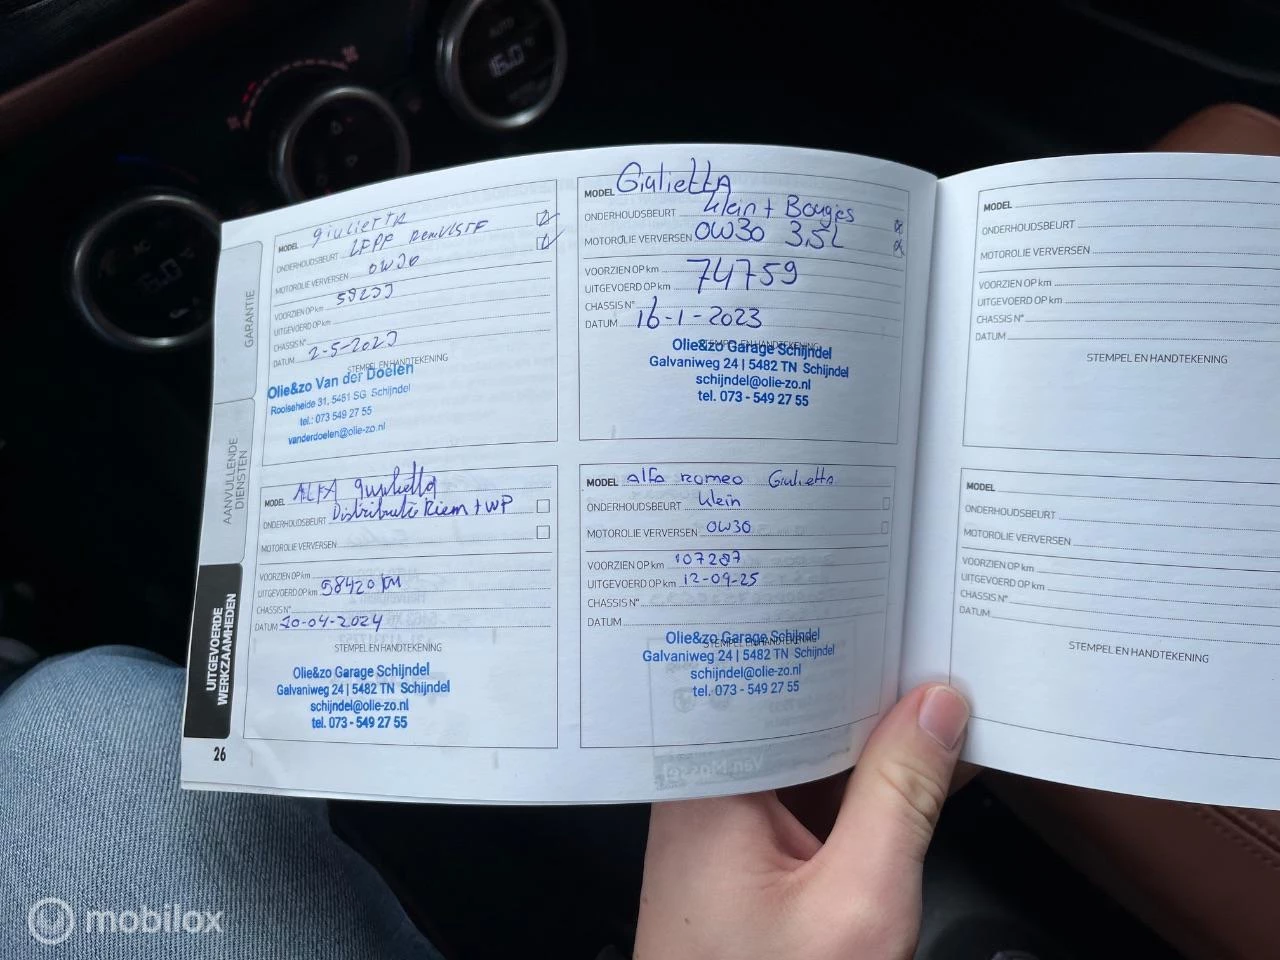 AUTO
16.0
AC
GARANTIE
AANVULLENDE
DIENSTEN
UITGEVOERDE
WERKZAAMHEDEN
26
MODEL giulietta
ONDERHOUDSBEURT
MOTOROLIE VERVERSEN 0W30
VOORZIEN OP km
UITGEVOERD OP km
CHASSIS N°
DATUM 2-5-2023
STEMPEL EN HANDTEKENING
Olie&zo Van der Doelen
Rooiseheide 31, 5481 SG Schijndel
tel.: 073 549 27 55
vanderdoelen@olie-zo.nl
MODEL GiuliettA
ONDERHOUDSBEURT klein + Bougies
MOTOROLIE VERVERSEN 0W30 3,5L
VOORZIEN OP km
UITGEVOERD OP km 74759
CHASSIS N°
DATUM 16-1-2023
STEMPEL EN HANDTEKENING
Olie&zo Garage Schijndel
Galvaniweg 24 | 5482 TN Schijndel
schijndel@olie-zo.nl
tel. 073 - 549 27 55
MODEL ALFA giulietta
ONDERHOUDSBEURT Distributie Riem + WP
MOTOROLIE VERVERSEN
VOORZIEN OP km
UITGEVOERD OP km 58420 KM
CHASSIS N°
DATUM 10-04-2024
STEMPEL EN HANDTEKENING
Olie&zo Garage Schijndel
Galvaniweg 24 | 5482 TN Schijndel
schijndel@olie-zo.nl
tel. 073 - 549 27 55
MODEL alfa romeo Giulietta
ONDERHOUDSBEURT klein
MOTOROLIE VERVERSEN 0W30
VOORZIEN OP km 107287
UITGEVOERD OP km 12-09-25
CHASSIS N°
DATUM
STEMPEL EN HANDTEKENING
Olie&zo Garage Schijndel
Galvaniweg 24 | 5482 TN Schijndel
schijndel@olie-zo.nl
tel. 073 - 549 27 55
MODEL
ONDERHOUDSBEURT
MOTOROLIE VERVERSEN
VOORZIEN OP km
UITGEVOERD OP km
CHASSIS N°
DATUM
STEMPEL EN HANDTEKENING
MODEL
ONDERHOUDSBEURT
MOTOROLIE VERVERSEN
VOORZIEN OP km
UITGEVOERD OP km
CHASSIS N°
DATUM
STEMPEL EN HANDTEKENING
mobilox